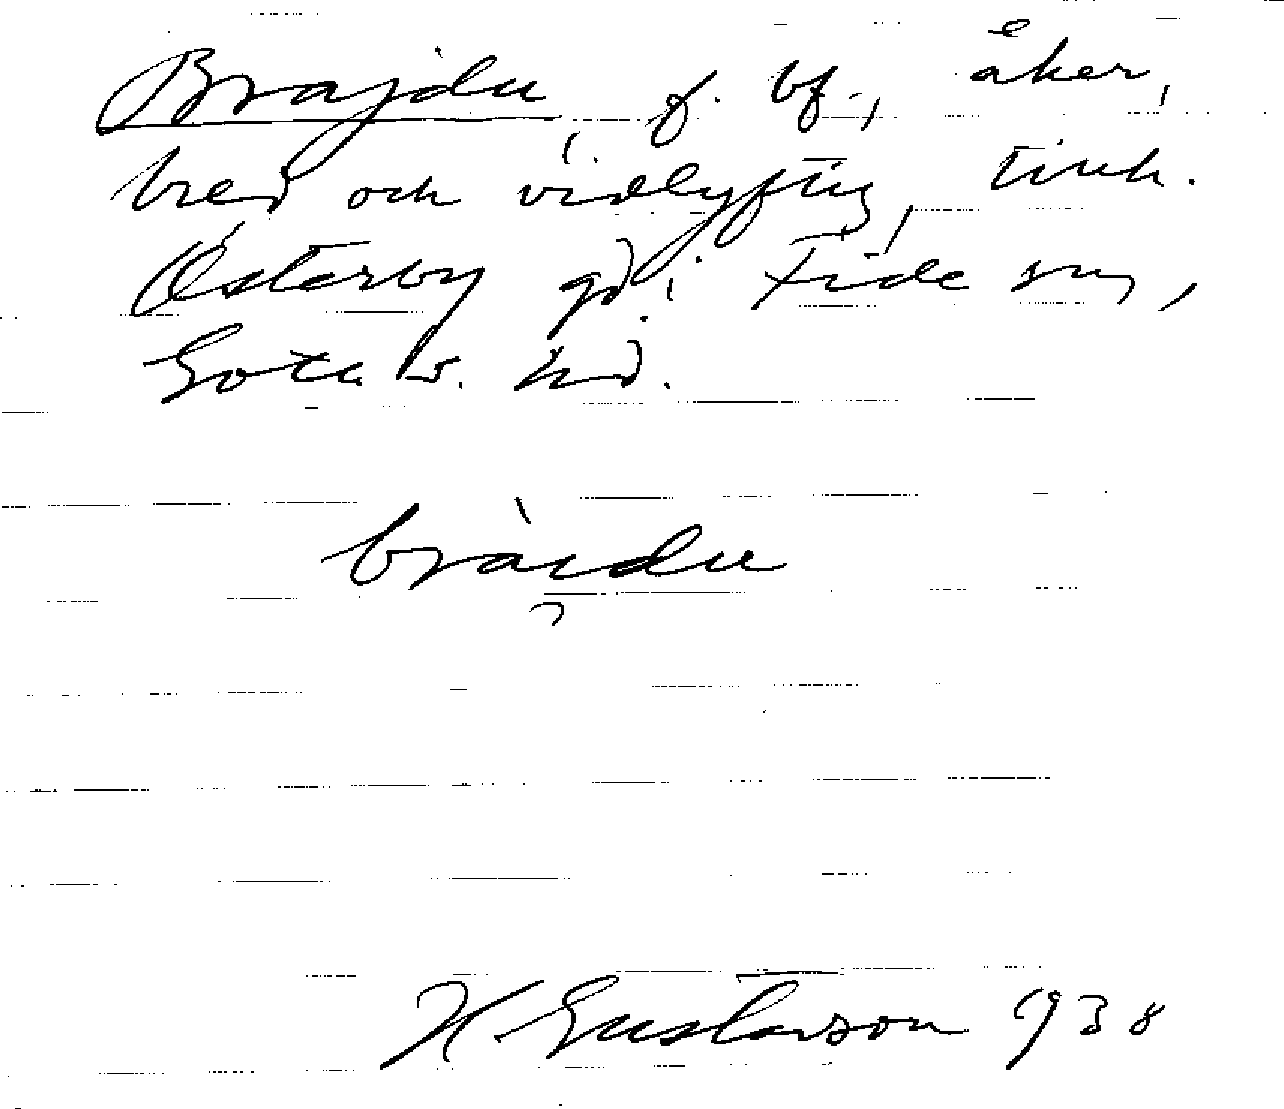 Brajdu, f. bf., åker,
bred och vidlyftig, tirh.
Österby gd. i Fide sn,
Gotl. hd.
bràidu
H. Gustavson 1938